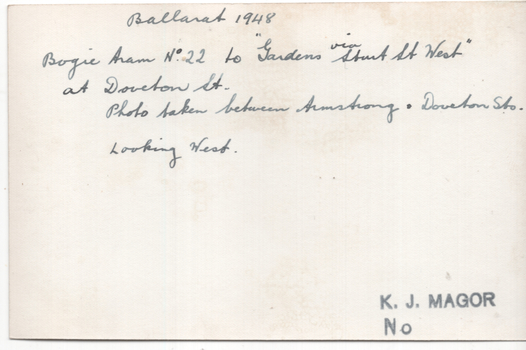 Ballarat 1948
Bogie Tram No. 22 to "Gardens via Sturt St West"
at Doveton St.
Photo taken between Armstrong & Doveton Sts.
Looking West.
K. J. MAGOR
No